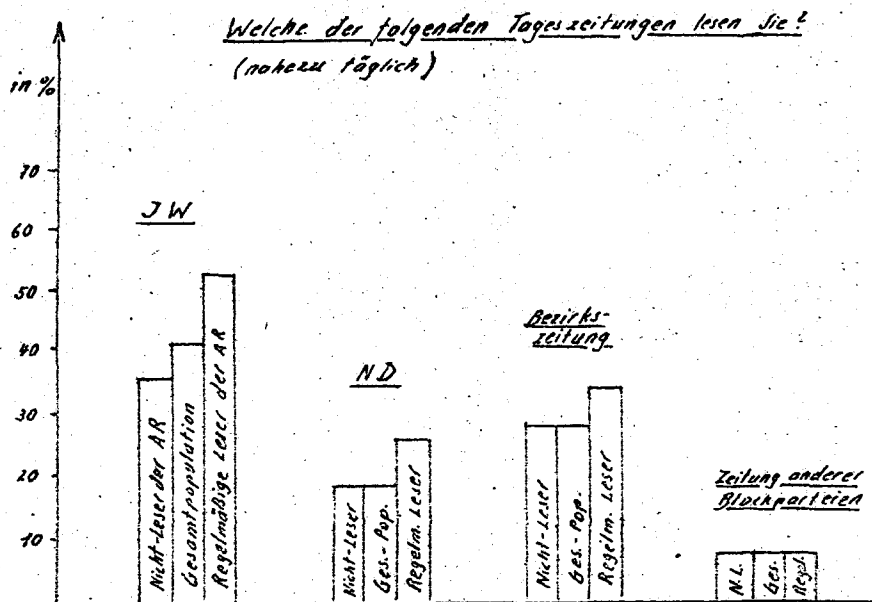 Welche der folgenden Tageszeitungen lesen Sie?
(nahezu täglich)
in %
70
60
50
40
30
20
10
JW
Nicht-Leser der AR
Gesamtpopulation
Regelmäßige Leser der AR
ND
Nicht-Leser
Ges.-Pop.
Regelm. Leser
Bezirks-
zeitung
Nicht-Leser
Ges.-Pop.
Regelm. Leser
Zeitung anderer
Blockparteien
N.L.
Ges.
Regel.